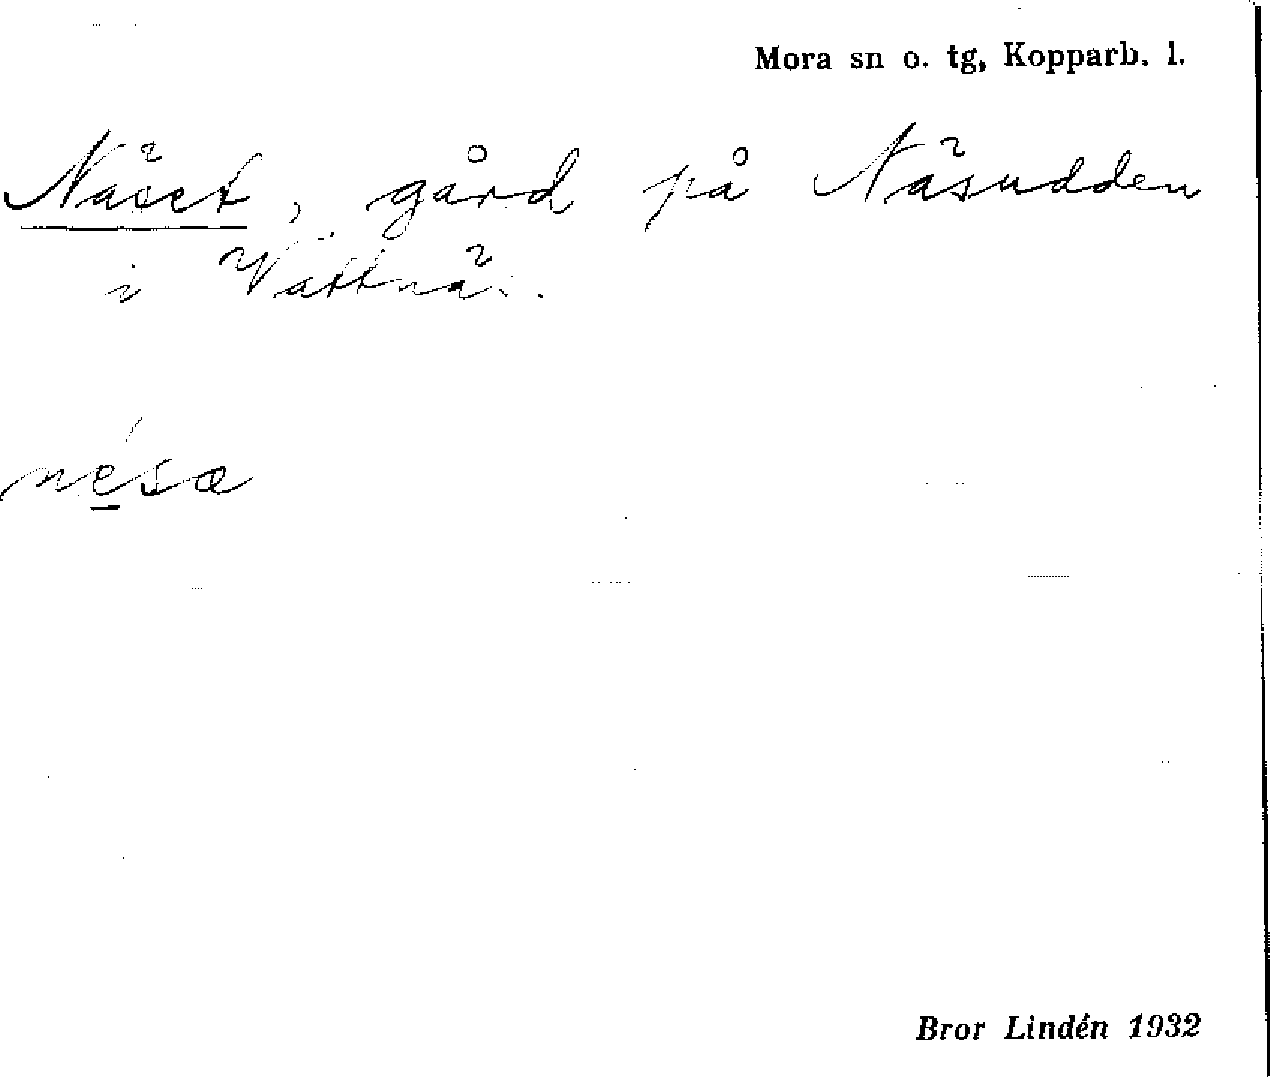 Mora sn o. tg, Kopparb. l.
Näset, gård på Näsudden
i Vattnäs.
nésa
Bror Lindén 1932